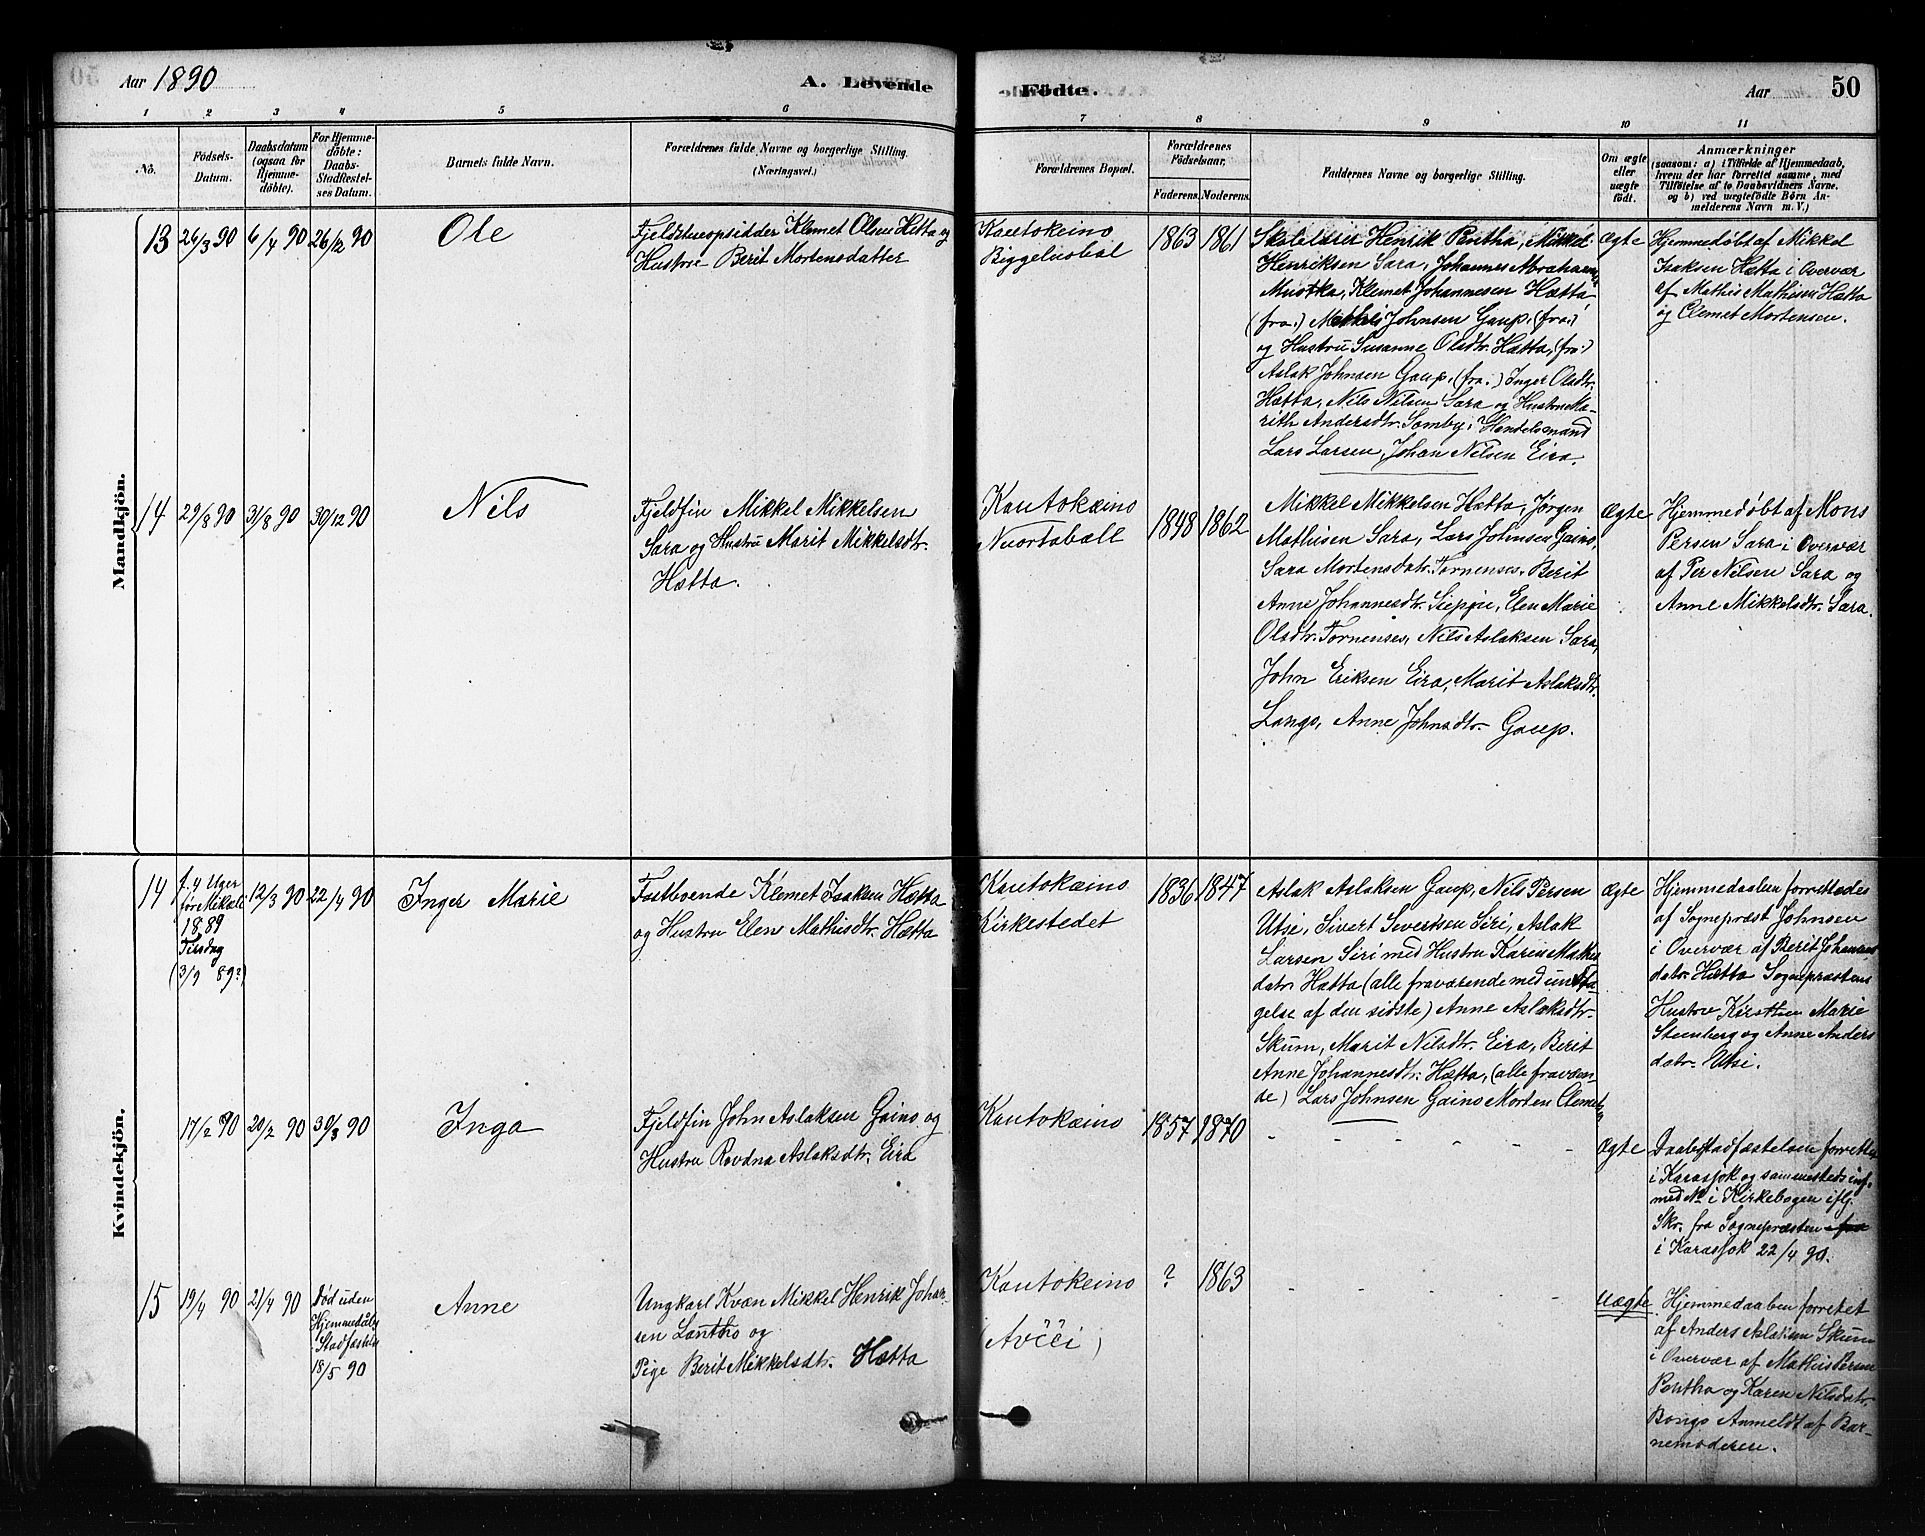 50
Aar 1890
A. Levende
Födte.
Aar
1
2
3
4
5
6
7
8
9
10
11
No.
Födsels-
Datum.
Daabsdatum
(ogsaa for
Hjemme-
döbte).
For Hjemme-
döbte:
Daabs-
Stadfæstel-
ses Datum.
Barnets fulde Navn.
Forældrenes fulde Navne og borgerlige Stilling.
(Næringsvei.)
Forældrenes Bopæl.
Forældrenes
Födselsaar.
Faderens.
Moderens.
Faddernes Navne og borgerlige Stilling.
Om ægte
eller
uægte
födt.
Anmærkninger
(saasom: a) i Tilfælde af Hjemmedaab,
hvem der har forrettet samme, med
Tilföielse af to Daabsvidners Navne,
og b) ved uægtefödte Börn An-
melderens Navn m. V.)
Mandkjön.
13
26/3 90
6/4 90
26/12 90
Ole
Fjeldstueopsidder Klemet Olsen Hætta og
Hustru Berit Mortensdatter
Kautokeino
Biggeluobal
1863
1861
Skoleelder Henrik Pentha, Mikkel
Henriksen Sara, Johannes Abraham
Muotka, Klemet Johannesen Hætta
(fra.) Mathis Johnsen Gaup, (fra.)
og Hustru Susanne Olsdtr. Hætta, (fra.)
Aslak Johnsen Gaup, (fra.) Inger Olsdtr.
Hætta, Nils Nilsen Sara og Hustru Ma-
rith Andersdtr. Somby, Handelsmand
Lars Larsen, Johan Nilsen Eira.
Ægte
Hjemmedøbt af Mikkel
Isaksen Hætta i Overvær
af Mathis Mathisen Hætta
og Clemet Mortensen.
14
29/8 90
31/8 90
30/12 90
Nils
Fjeldfin Mikkel Mikkelsen
Sara og Hustru Marit Mikkelsdtr.
Hætta.
Kautokæino
Nuortabæll
1848
1862
Mikkel Mikkelsen Hætta, Jørgen
Mathisen Sara, Lars Johnsen Gaino,
Sara Mortensdatr. Tornenses, Berit
Anne Johannesdtr. Siepju, Elen Marie
Olsdtr. Tornenses, Nils Aslaksen Sara,
John Eriksen Eira, Marit Aslaksdtr.
Lango, Anne Johnsdtr. Gaup.
Ægte
Hjemmedøbt af Mons
Persen Sara i Overvær
af Per Nilsen Sara og
Anne Mikkelsdtr. Sara.
Kvindekjön.
14
f. 4 Uger
före Mikali
1889
Tirsdag
(3/9 89?)
12/3 90
22/4 90
Inger Marie
Fastboende Klemet Isaksen Hætta
og Hustru Elen Mathisdtr. Hætta
Kautokæino
Kirkestedet
1836
1847
Aslak Aslaksen Gaup, Nils Persen
Utsi, Sivert Sivertsen Siri, Aslak
Larsen Siri med Hustru Karen Mathis
datr. Hætta (alle fraværende med undta-
gelse af den sidste) Anne Aslaksdtr.
Skum, Marit Nilsdtr. Eira, Berit
Anne Johannesdtr. Hætta, (alle fraværen-
de) Lars Johnsen Gaino Morten Clemets
Ægte
Hjemmedaaben forrettedes
af Sognepræst Johnsen
i Overvær af Berit Johannes
datr. Hætta Sognepræstens
Hustru Kirsten Marie
Steenberg og Anne Anders
datr. Utsi.
17/2 90
20/2 90
30/3 90
Inga
Fjeldfin John Aslaksen Gaino og
Hustru Rovdna Aslaksdtr. Eira
Kautokæino
1857
1870
Ægte
Daabsstadfæstelsen forrettet
i Karasjok og sammesteds inf.
med No i Kirkebogen iflg.
Skr. fra Sognepræsten
i Karasjok 22/4 90.
15
19/4 90
21/4 90
Død uden
Hjemmedaabs
Stadfæstelse
18/5 90
Anne
Ungkarl Kvæn Mikkel Henrik Johan-
sen Lantto og
Pige Berit Mikkelsdtr. Hætta
Kautokeino
(Avčči)
?
1863
Uægte
Hjemmedaaben forrettet
af Anders Aslaksen Skum
i Overvær af Mathis Persen
Pentha og Karen Nilsdatr.
Bongo Anmeldt af Bar-
nemoderen.